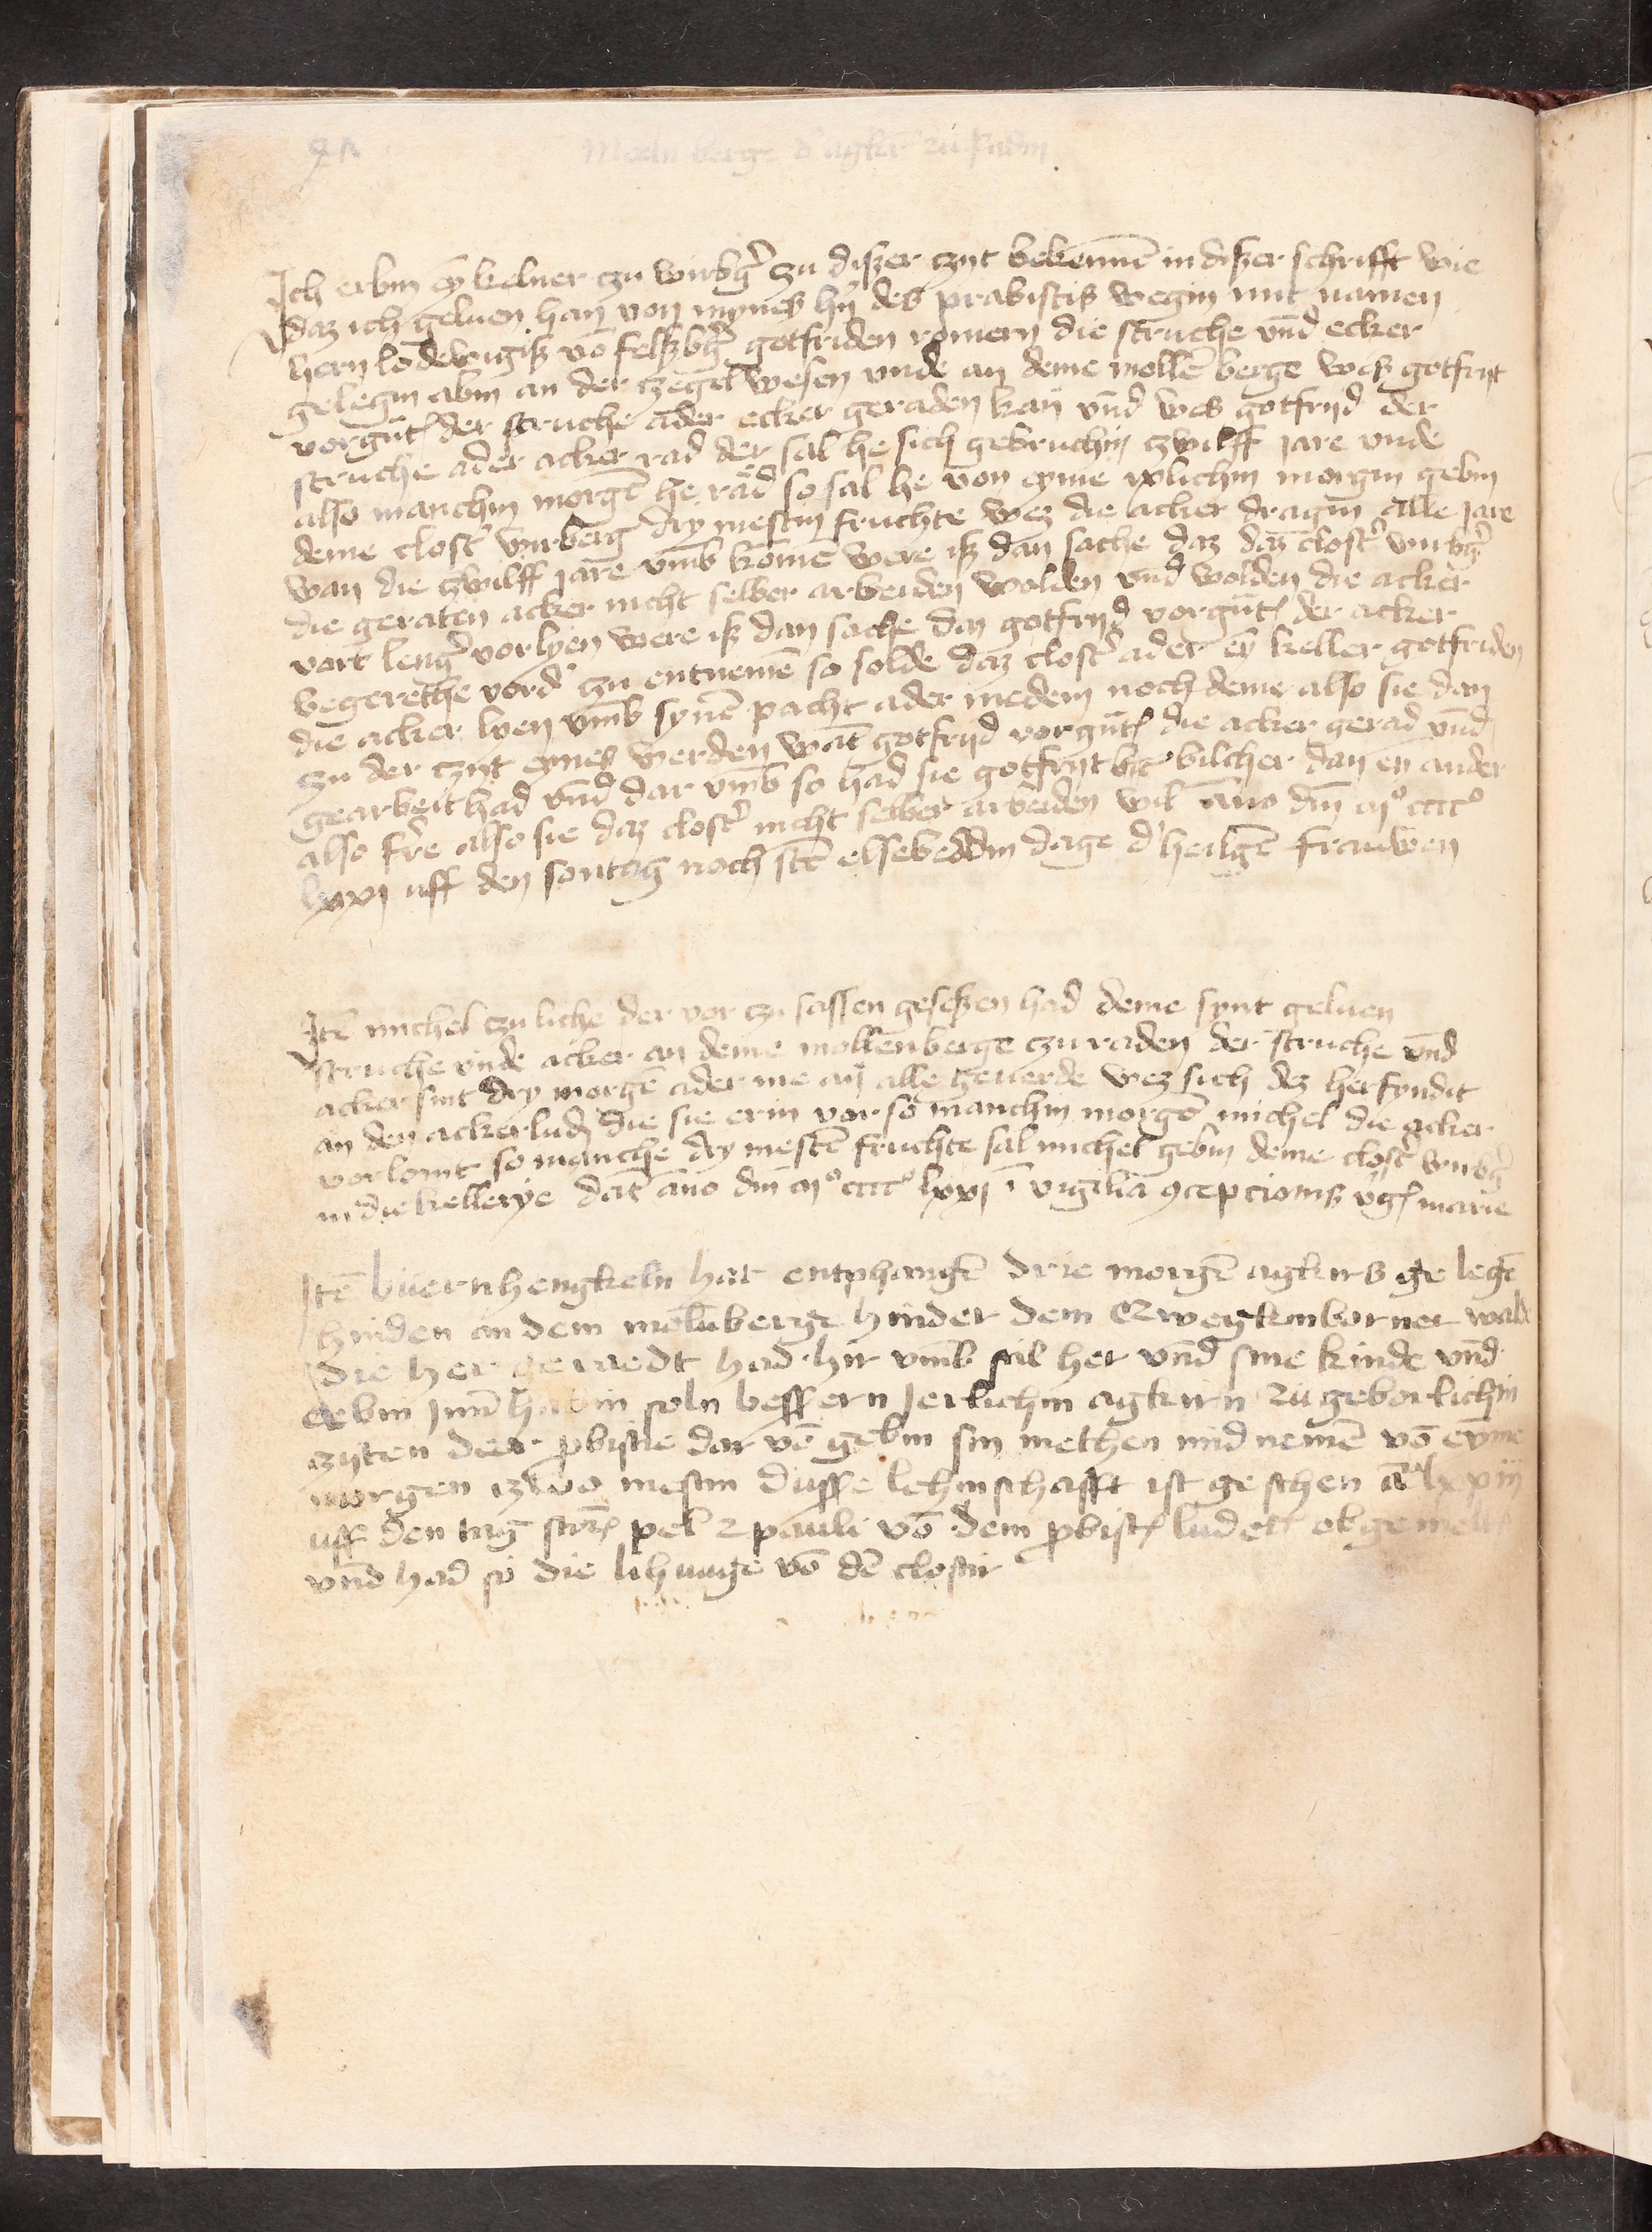 Moeln berge d' agker zu Radin
Ich erbin ey kelner czu wirbg' zu dißer czyt bekennē in dißer schrifft wie
daz ich geluen han von mynes hr̄n des prabistis wegin mit namen
hern lodewigiß vō felßbg' gotfriden romern die struche vnd ecker
gelegin abin an der czegel wesen vnde an deme mollē berge was gotfrijt
vorgūt der struche ader ecker geraden kan vnd was gotfrijd der
struche ader acker rad der sal he sich gebruchin czwilff jare vnde
also manchin morgē he rad so sal he von eyme iglichin morgin gebin
deme clost' wirberg dry mestin fruchte wez die acker dragin alle jare
wan die czwilff jare vmb komē were iß dan sache daz daz clost' wirbg'
die geraten acker nicht selber arbeiden wolden vnd wolden die acker
vort leng' vorlyen were iß dan sache daz gotfrijd vorgūt der acker
begerethe vord' czu entnemē so solde daz clost' ader ey keller gotfriden
die acker lyen vmb synē pacht ader medem noch deme also sie dan
czu der czyt eynes werden wāt gotfrijd vorgūt die acker gerad vnd
gearbeit had vnd dar vmb so had sie gotfrijt bit bilcher dan en ander
also fr̄e also sie daz clost' nicht selber arbeiden wil āno dm̄ mº ccccº
lxxi uff den sontag noch sct̄ elsebeddin dage d' heilgē frauwen
Itē michel czu liche der vor czu sassen geseßen had deme synt geluen
struche vnde acker an deme mollenberge czu raden der struche vnd
acker sint dry morgē ader me an alle geuerde wez sich dez herfyndit
an den ackerludē die sie erin vor so manchin morgē michel die acker
vorlomt so manche dry mestē fruchte sal michel gebin deme clost' wirbg'
in die kellerye dat āno dm̄ mº ccccº lxxi ī vigilia ꝯcepcionis v'gī marie
Itē buernhengkeln hat entphangē drie morgē agkirs ge legē
hinden an dem molnberge hinder dem Erweytkinborner walde
die her geraedt had hir vmb sal her vnd sine kinde vnd
erbin jnne habin soln bessern jerlichin agkirn zu geborlichin
zijten der pbistie dar vō gebin sin methen mid nemē vō eyme
morgen zwo mestin dusse lehinschafft ist geschen āº lxxiij
uff den tag sctōr pet' ⁊ pauli vō dem pbist luder obgemelt
vnd had so die lihunge vō dē clostir